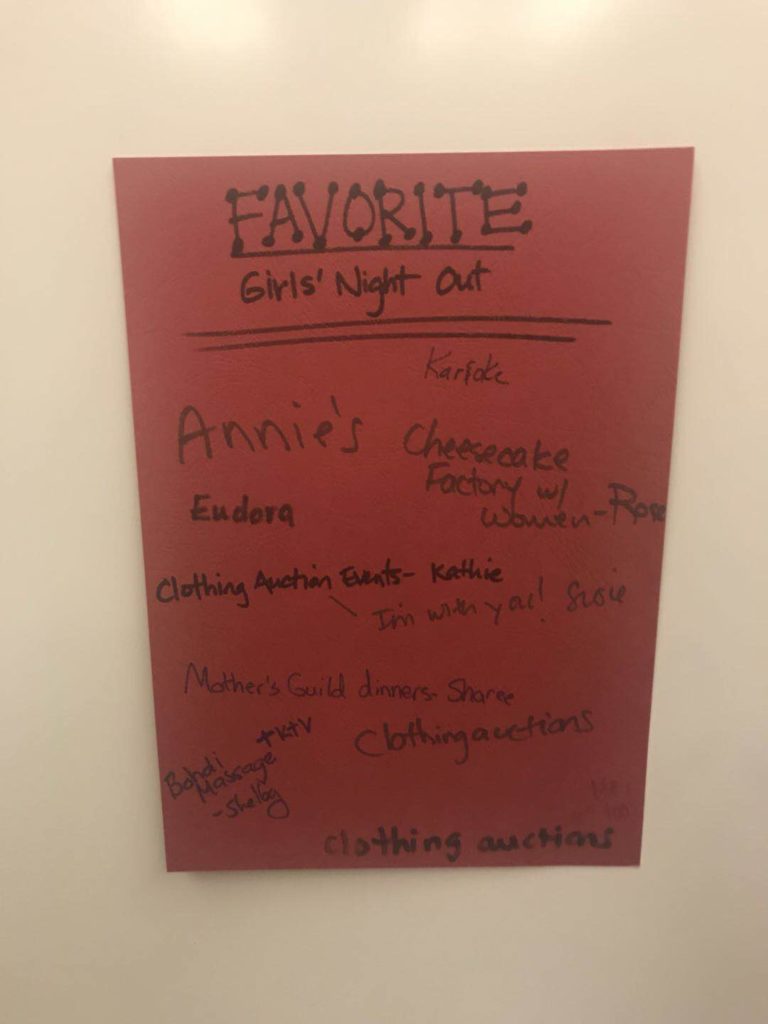 FAVORITE
Girls' Night Out
Karaoke
Annie's
Cheesecake
Factory w/
women-Rose
Eudora
Clothing Auction Events- Kathie
I'm with you! Susie
Mother's Guild dinners- Sharee
+ KTV
Bohdi
Massage
-Shelby
Clothing auctions
clothing auctions